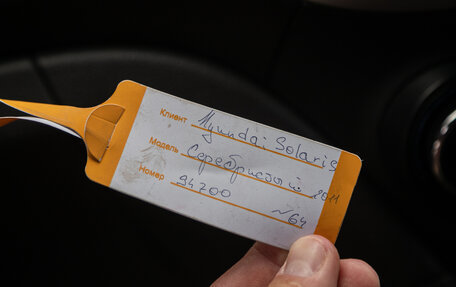 Клиент Hyundai Solaris
Модель Серебристый 2011
Номер 94200 №64